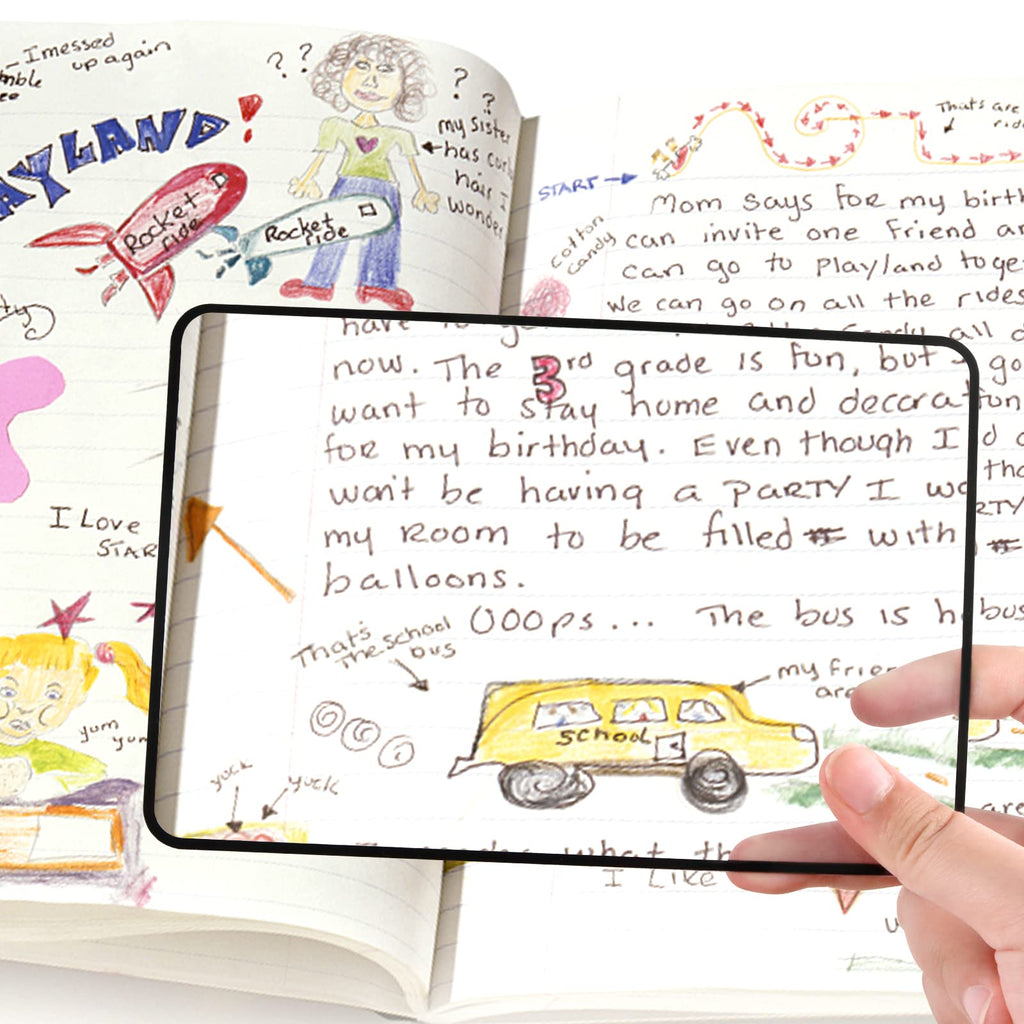 I messed
up again
AYLAND!
? ?
? ?
my sister
has
hair I
wonder
Rocket
ride
Rocket
ride
I Love
STAR
yum
yum
That's are
START
cotton
candy
Mom says for my birth
can invite one friend
can go to Playland toge
we can go on all the rides
all
have
now. The 3rd grade is fun, but
want to stay home and
for my birthday. Even though I
won't be having a PARTY I
my Room to be filled with
balloons.
OOOps... The bus is h
That's
the school
bus
my frien
are
school
yuck
yuck
what
bus
are
I Like